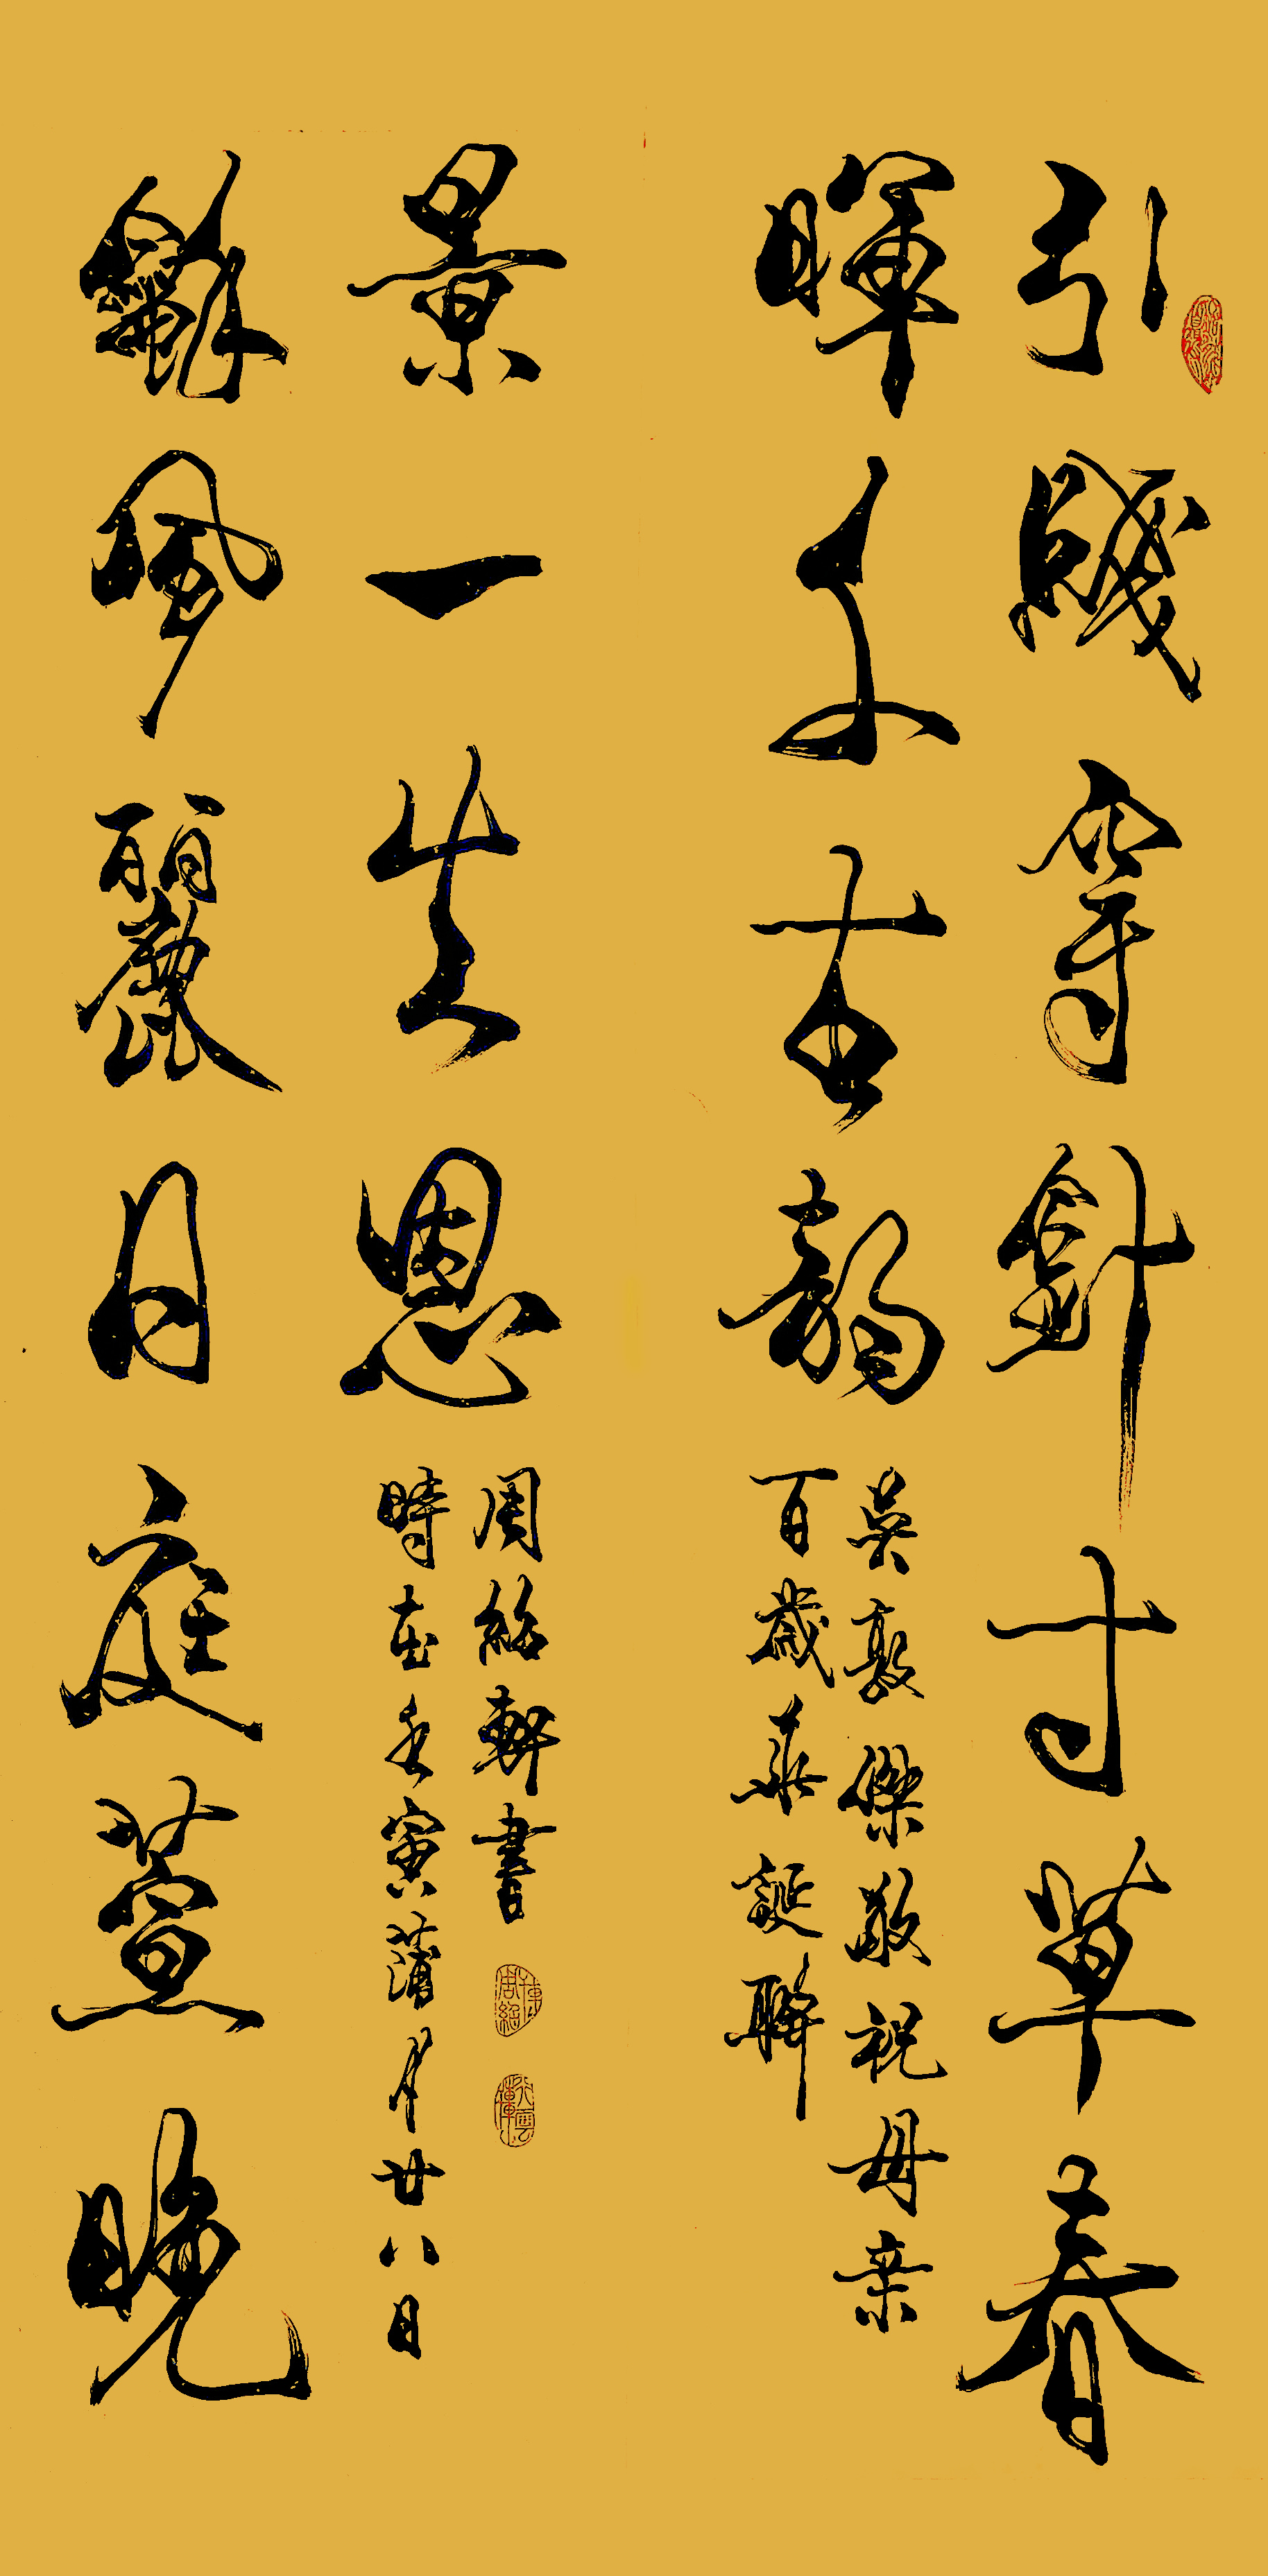 引綫穿針寸草春
暉千古韻
吳敦傑敬祝母亲
百歲華誕聯
龢風麗日庭萱晚
景一生恩
時在壬寅蒲月廿八日
周紹軒書